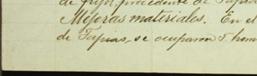 de Gijón, procedente de Tapia
Mejoras materiales. En el
de Tapias, se ocuparon 5 hom